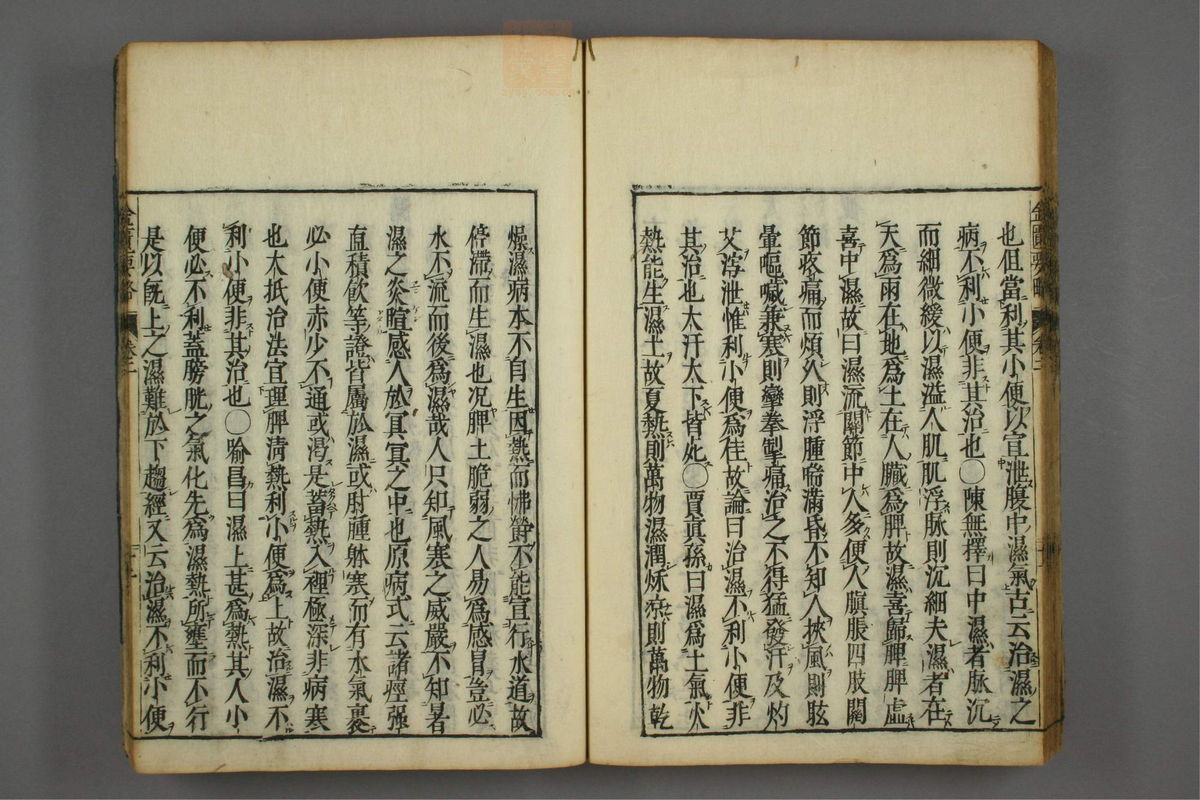 也但當利其小便以宣泄腹中濕氣古云治濕之
病不利小便非其治也○陳無擇曰中濕者脉沉
而細微緩以濕溢人肌肌浮脉則沉細夫濕者在
天爲雨在地爲土在人臟爲脾故濕喜歸脾脾虛
喜中濕故曰濕流關節中人多便人䐜脹四肢關
節疼痛而煩久則浮腫喘滿昏不知人挾風則眩
暈嘔噦兼寒則攣拳掣痛治之不得猛發汗及灼
艾泻泄惟利小便爲佳故論曰治濕不利小便非
其治也大汗大下皆此○賈眞孫曰濕爲土氣火
熱能生濕土故夏熱則萬物濕潤秋凉則萬物乾
燥濕病本不自生因熱而怫欝不能宣行水道故
停滯而生濕也况脾土脆弱之人易爲感冒豈必
水不流而後爲濕哉人只知風寒之威嚴不知暑
濕之炎暄感人於冥冥之中也原病式云諸痙強
直積飮等證皆屬於濕或胕腫躰寒而有水氣裏
必小便赤少不通或渴是蓄熱入裡極深非病寒
也大抵治法宜理脾淸熱利小便爲上故治濕不
利小便非其治也○喻昌曰濕上甚爲熱其人小
便必不利蓋膀胱之氣化先爲濕熱所壅而不行
是以旣上之濕難於下趨經又云治濕不利小便
金匱要略
卷二